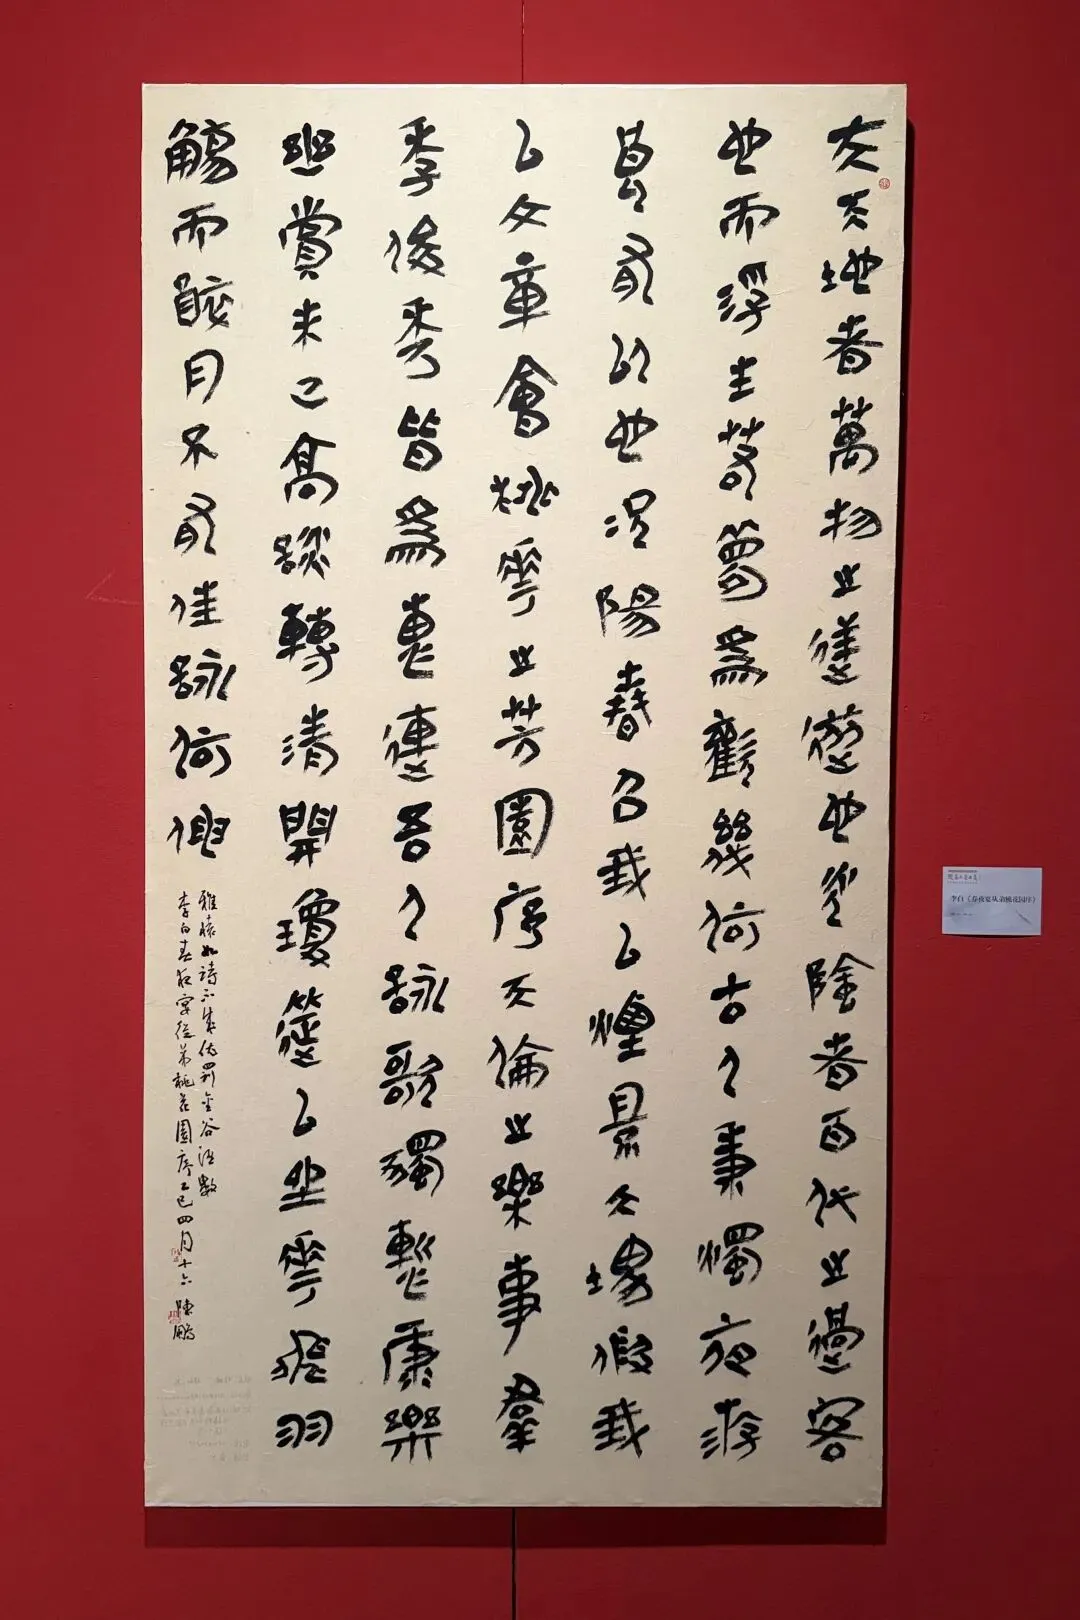 夫天地者萬物之逆旅也光陰者百代之過客
也而浮生若夢為歡幾何古人秉燭夜游
良有以也況陽春召我以煙景大塊假我
以文章會桃花之芳園序天倫之樂事羣
季俊秀皆為惠連吾人詠歌獨慙康樂
幽賞未已高談轉清開瓊筵以坐花飛羽
觴而醉月不有佳詠何伸
雅懷如詩不成依罰金谷酒數
李白春夜宴從弟桃花園序乙巳四月十六 陳鵬
李白《春夜宴从弟桃花园序》